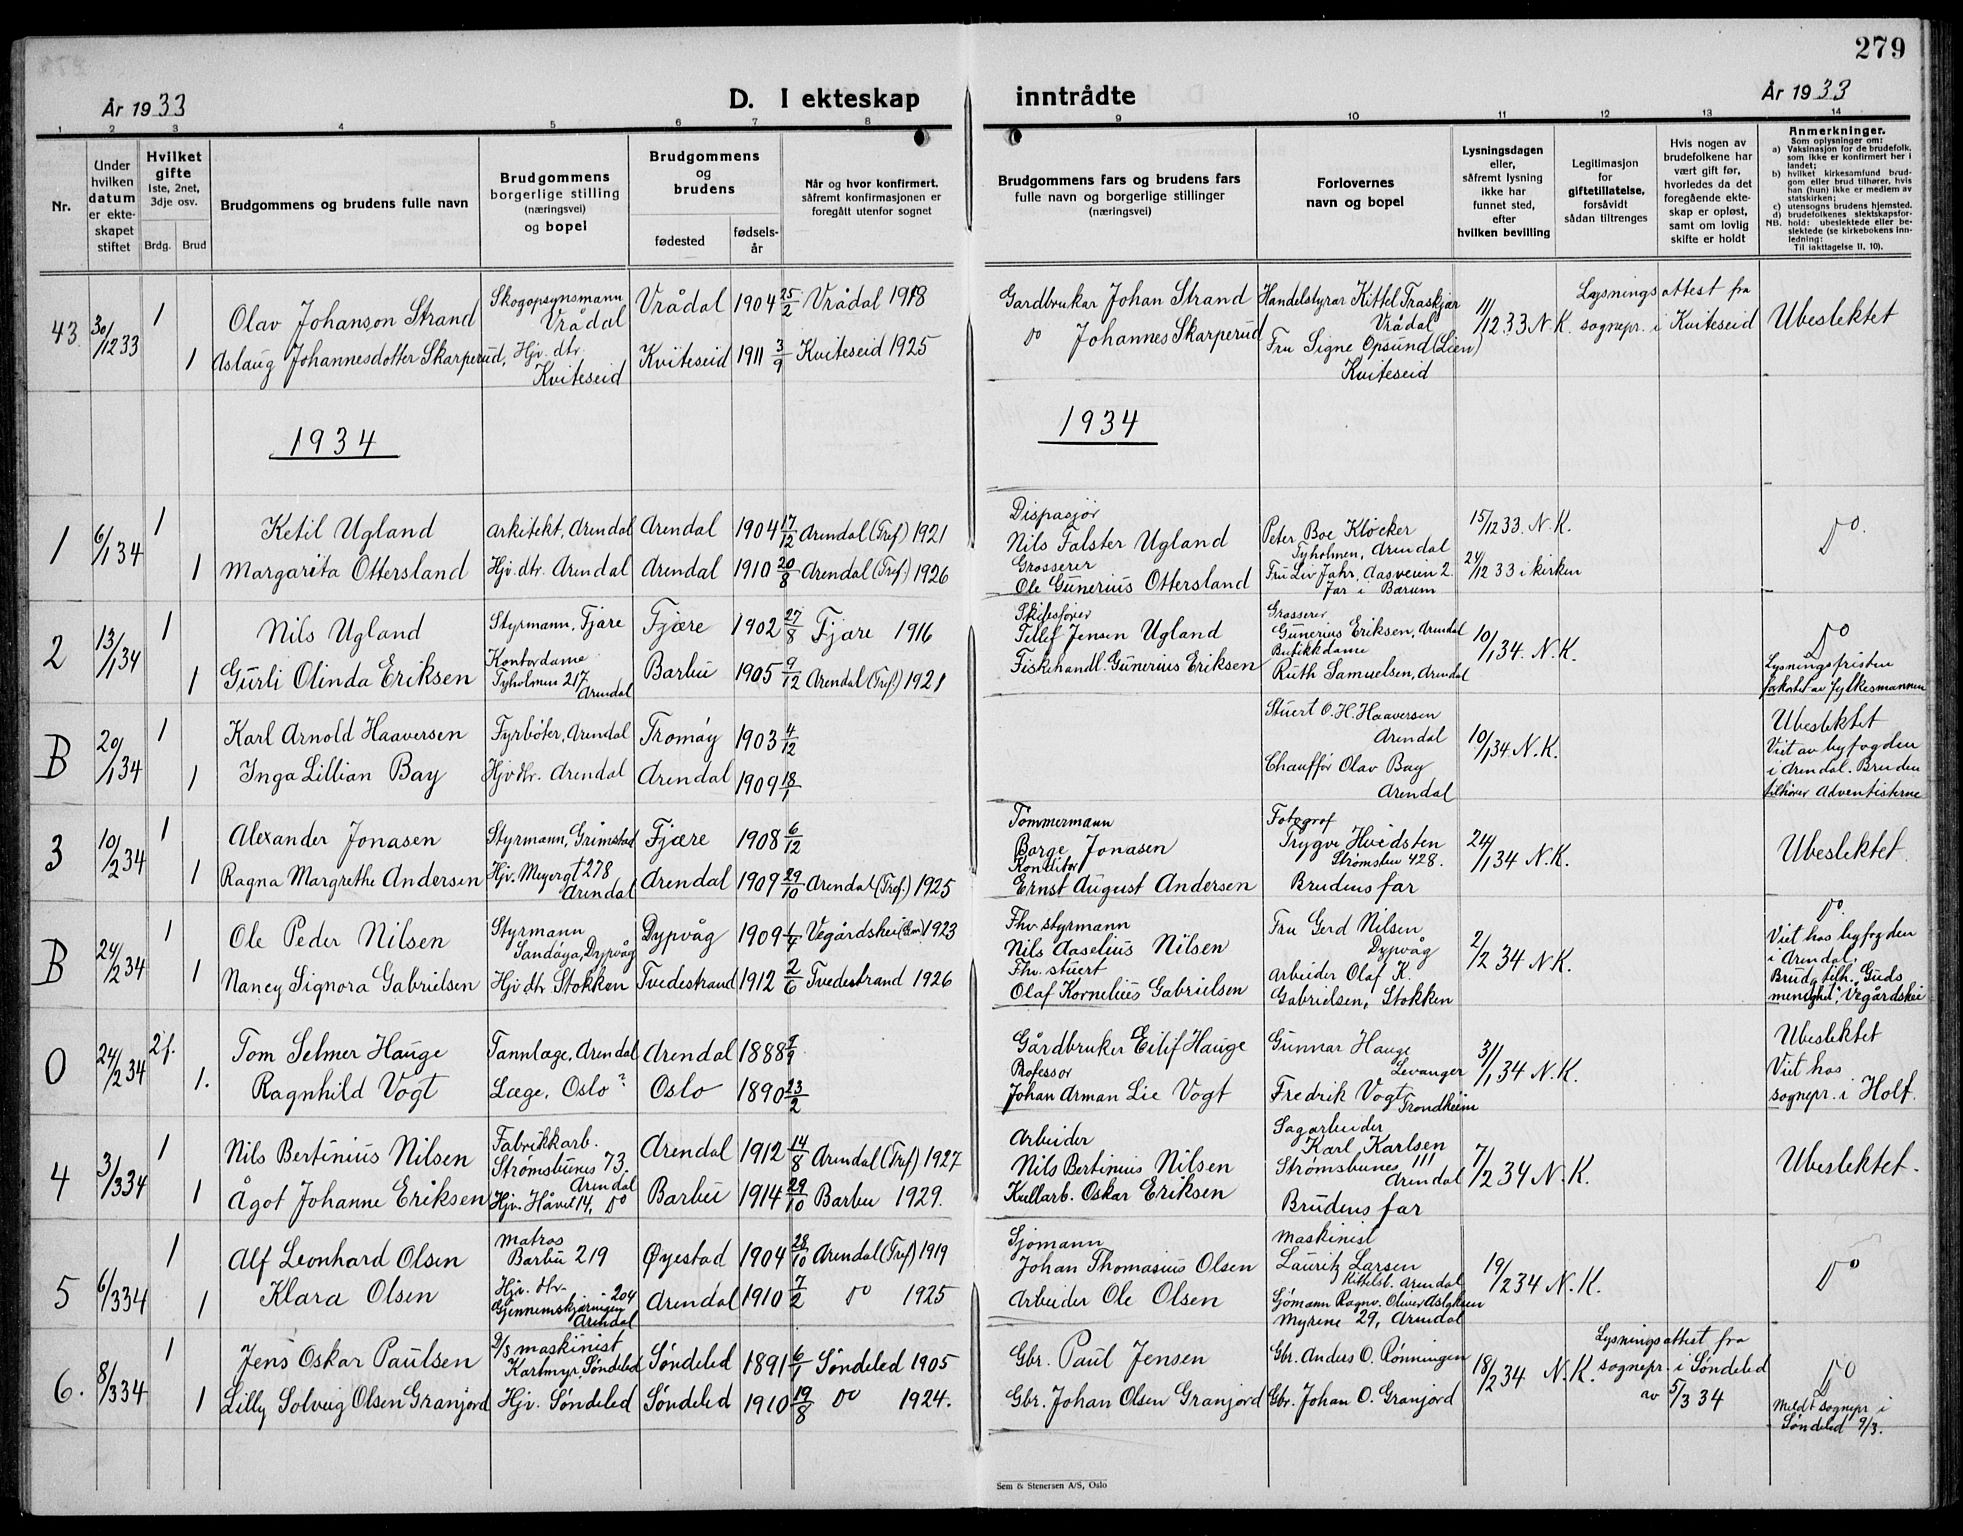 279
År 1933
D. I ekteskap inntrådte
År 1933
1 2 3 4 5 6 7 8 9 10 11 12 13 14
Nr.
Under hvilken datum er ekteskapet stiftet
Hvilket gifte
1ste, 2net, 3dje osv.
Brdg. Brud
Brudgommens og brudens fulle navn
Brudgommens borgerlige stilling (næringsvei) og bopel
Brudgommens og brudens
fødested
fødselsår
Når og hvor konfirmert, såfremt konfirmasjonen er foregått utenfor sognet
Brudgommens fars og brudens fars fulle navn og borgerlige stillinger (næringsvei)
Forlovernes navn og bopel
Lysningsdagen eller, såfremt lysning ikke har funnet sted, efter hvilken bevilling
Legitimasjon for giftetillatelse, forsåvidt sådan tiltrenges
Hvis nogen av brudefolkene har vært gift før, hvorledes da det foregående ekteskap er opløst, samt om lovlig skifte er holdt
Anmerkninger.
Som oplysninger om:
a) Vaksinasjon for de brudefolk, som ikke er konfirmert her i landet;
b) hvilket kirkesamfund brudgom eller brud tilhører, hvis han (hun) ikke er medlem av statskirken;
c) utensogns brudens hjemsted.
d) brudefolkenes slektskapsforhold: ubeslektede eller beslektede (se kirkebokens innledning:
NB. Til iakttagelse II, 10).
43 30/12 33 1 Olav Johanson Strand Skogopsynsmann Vrådal Vrådal 1904 25/2 Vrådal 1918 Gardbrukar Johan Strand Handelstyrar Kittel Traskjær Vrådal 11/12 33 N.K. Lysningsattest fra sognepr. i Kviteseid Ubeslektet
1 Aslaug Johannesdotter Skarperud, Hjv. dtr. Kviteseid Kviteseid 1911 3/9 Kviteseid 1925 do Johannes Skarperud Fru Signe Opsund (Lien) Kviteseid
1934
1934
1 6/1 34 1 Ketil Ugland Arkitekt, Arendal Arendal 1904 17/12 Arendal (Tref) 1921 Dispasjør Nils Falster Ugland Peter Boe Kløcker Tyholmen, Arendal 15/12 33. N.K. Do.
1 Margarita Ottersland Hjv. dtr. Arendal Arendal 1910 20/8 Arendal (Tref.) 1926 Grosserer Ole Gunerius Ottersland Fru Liv Jahr, Aasveien 2. Jar i Bærum 24/12 33 i kirken
2 13/1 34 1 Nils Ugland Styrmann, Fjære Fjære 1902 27/8 Fjære 1916 Skibsfører Tellef Jensen Ugland Grosserer Gunerius Eriksen, Arendal 10/1 34. N.K. Do
1 Gurli Olinda Eriksen Kontordame Tyholmen 217 Arendal Barbu 1905 9/12 Arendal (Tref.) 1921 Fiskehandl. Gunerius Eriksen Butikkdame Ruth Samuelsen, Arendal Lysningsfristen forkortet av fylkesmannen
B 20/1 34 1 Karl Arnold Haaversen Fyrbøter, Arendal Tromøy 1903 4/12 Stuert O. H. Haaversen Arendal 10/1 34 N.K. Ubeslektet
1 Inga Lillian Bay Hjv dtr. Arendal Arendal 1909 18/1 Chauffør Olav Bay Arendal Viet av byfogden i Arendal. Bruden tilhører Adventisterne
3 10/2 34 1 Alexander Jonasen Styrmann, Grimstad Fjære 1908 6/12 Tømmermann Børge Jonasen Fotograf Trygve Hvidsten Strømsbu 428. 24/1 34 N.K. Ubeslektet
1 Ragna Margrethe Andersen Hjv. Meyergt 278 Arendal Arendal 1909 29/10 Arendal (Tref.) 1925 Konditor Ernst August Andersen Brudens far
B 24/2 34 1 Ole Peder Nilsen Styrmann Sandøya, Dypvåg Dypvåg 1909 Vegårdshei 1923 Fhv. styrmann Nils Aaselius Nilsen Fru Gerd Nilsen Dypvåg 2/2 34 N.K. Do.
1 Nancy Signora Gabrielsen Hjv. dtr Stokken Tvedestrand 1912 2/6 Tvedestrand 1926 Fhv. stuert Olaf Kornelius Gabrielsen Arbeider Olaf K. Gabrielsen, Stokken Viet hos byfogden i Arendal. Brudg. tilh. "Guds menighet", Vegårdshei
O 24/2 34 2 f. Tom Selmer Hauge Tannlæge, Arendal Arendal 1888 Gårdbruker Eilif Hauge Gunnar Hauge Levanger 31/1 34 N.K. Ubeslektet
1. Ragnhild Vogt Læge, Oslo? Oslo 1890 23/2 Professor Johan Arman Lie Vogt Fredrik Vogt Trondheim Viet hos sognepr. i Holt.
4 3/3 34 1 Nils Bertinius Nilsen Fabrikkarb. Strømsbunes 73. Arendal Arendal 1912 14/8 Arendal (Tref) 1927 Arbeider Nils Bertinius Nilsen Sagarbeider Karl Karlsen Strømsbunes 111 Arendal 7/2 34 N.K. Ubeslektet.
1 Ågot Johanne Eriksen Hjv. Håvet 14, do Barbu 1914 29/10 Barbu 1929. Kullarb. Oskar Eriksen Brudens far
5 6/3 34 1 Alf Leonhard Olsen Matros Barbu 219 Øyestad 1904 28/10 Arendal (Tref) 1919 Sjømann Johan Thomasius Olsen Maskinist Lauritz Larsen Kittelsb. Arendal 19/2 34 N.K. Do
1 Klara Olsen Hjv. dtr. Gjennemskjæringen 204 Arendal Arendal 1910 7/2 do 1925 Arbeider Ole Olsen Sjømann Ragnv. Oliver Aslaksen Myrene 29, Arendal
6. 8/3 34 1 Jens Oskar Paulsen D/S maskinist Kartmyr, Søndeled Søndeled 1891 6/1 Søndeled 1905 Gbr. Paul Jensen Gbr. Anders O. Rønningen 18/2 34 N.K. Lysningsattest fra sognepr. i Søndeled av 5/3 34 Do
1 Lilly Solveig Olsen Granjord Hjv. Søndeled Søndeled 1910 19/8 do 1924. Gbr. Johan Olsen Granjord Gbr. Johan O. Granjord Meldt sognepr. i Søndeled 9/3.
Sem & Stenersen A/S, Oslo